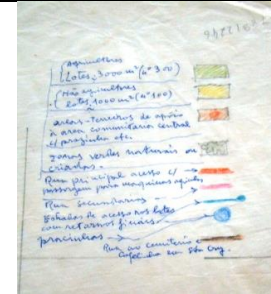 Agricultores
Lotes 3000 m² (nº 300)
Não agricultores
Lotes 1000 m² (nº 100)
áreas - terrenos de apoio
à área comunitária central
c/ pracinha etc.
zonas verdes naturais ou
criadas.
Rua principal acesso c/
passagem para máquinas agrícolas
Rua secundárias
de acesso aos lotes
com retornos finais.
pracinhas
Rua ao cemitério e
da Sta Cruz.